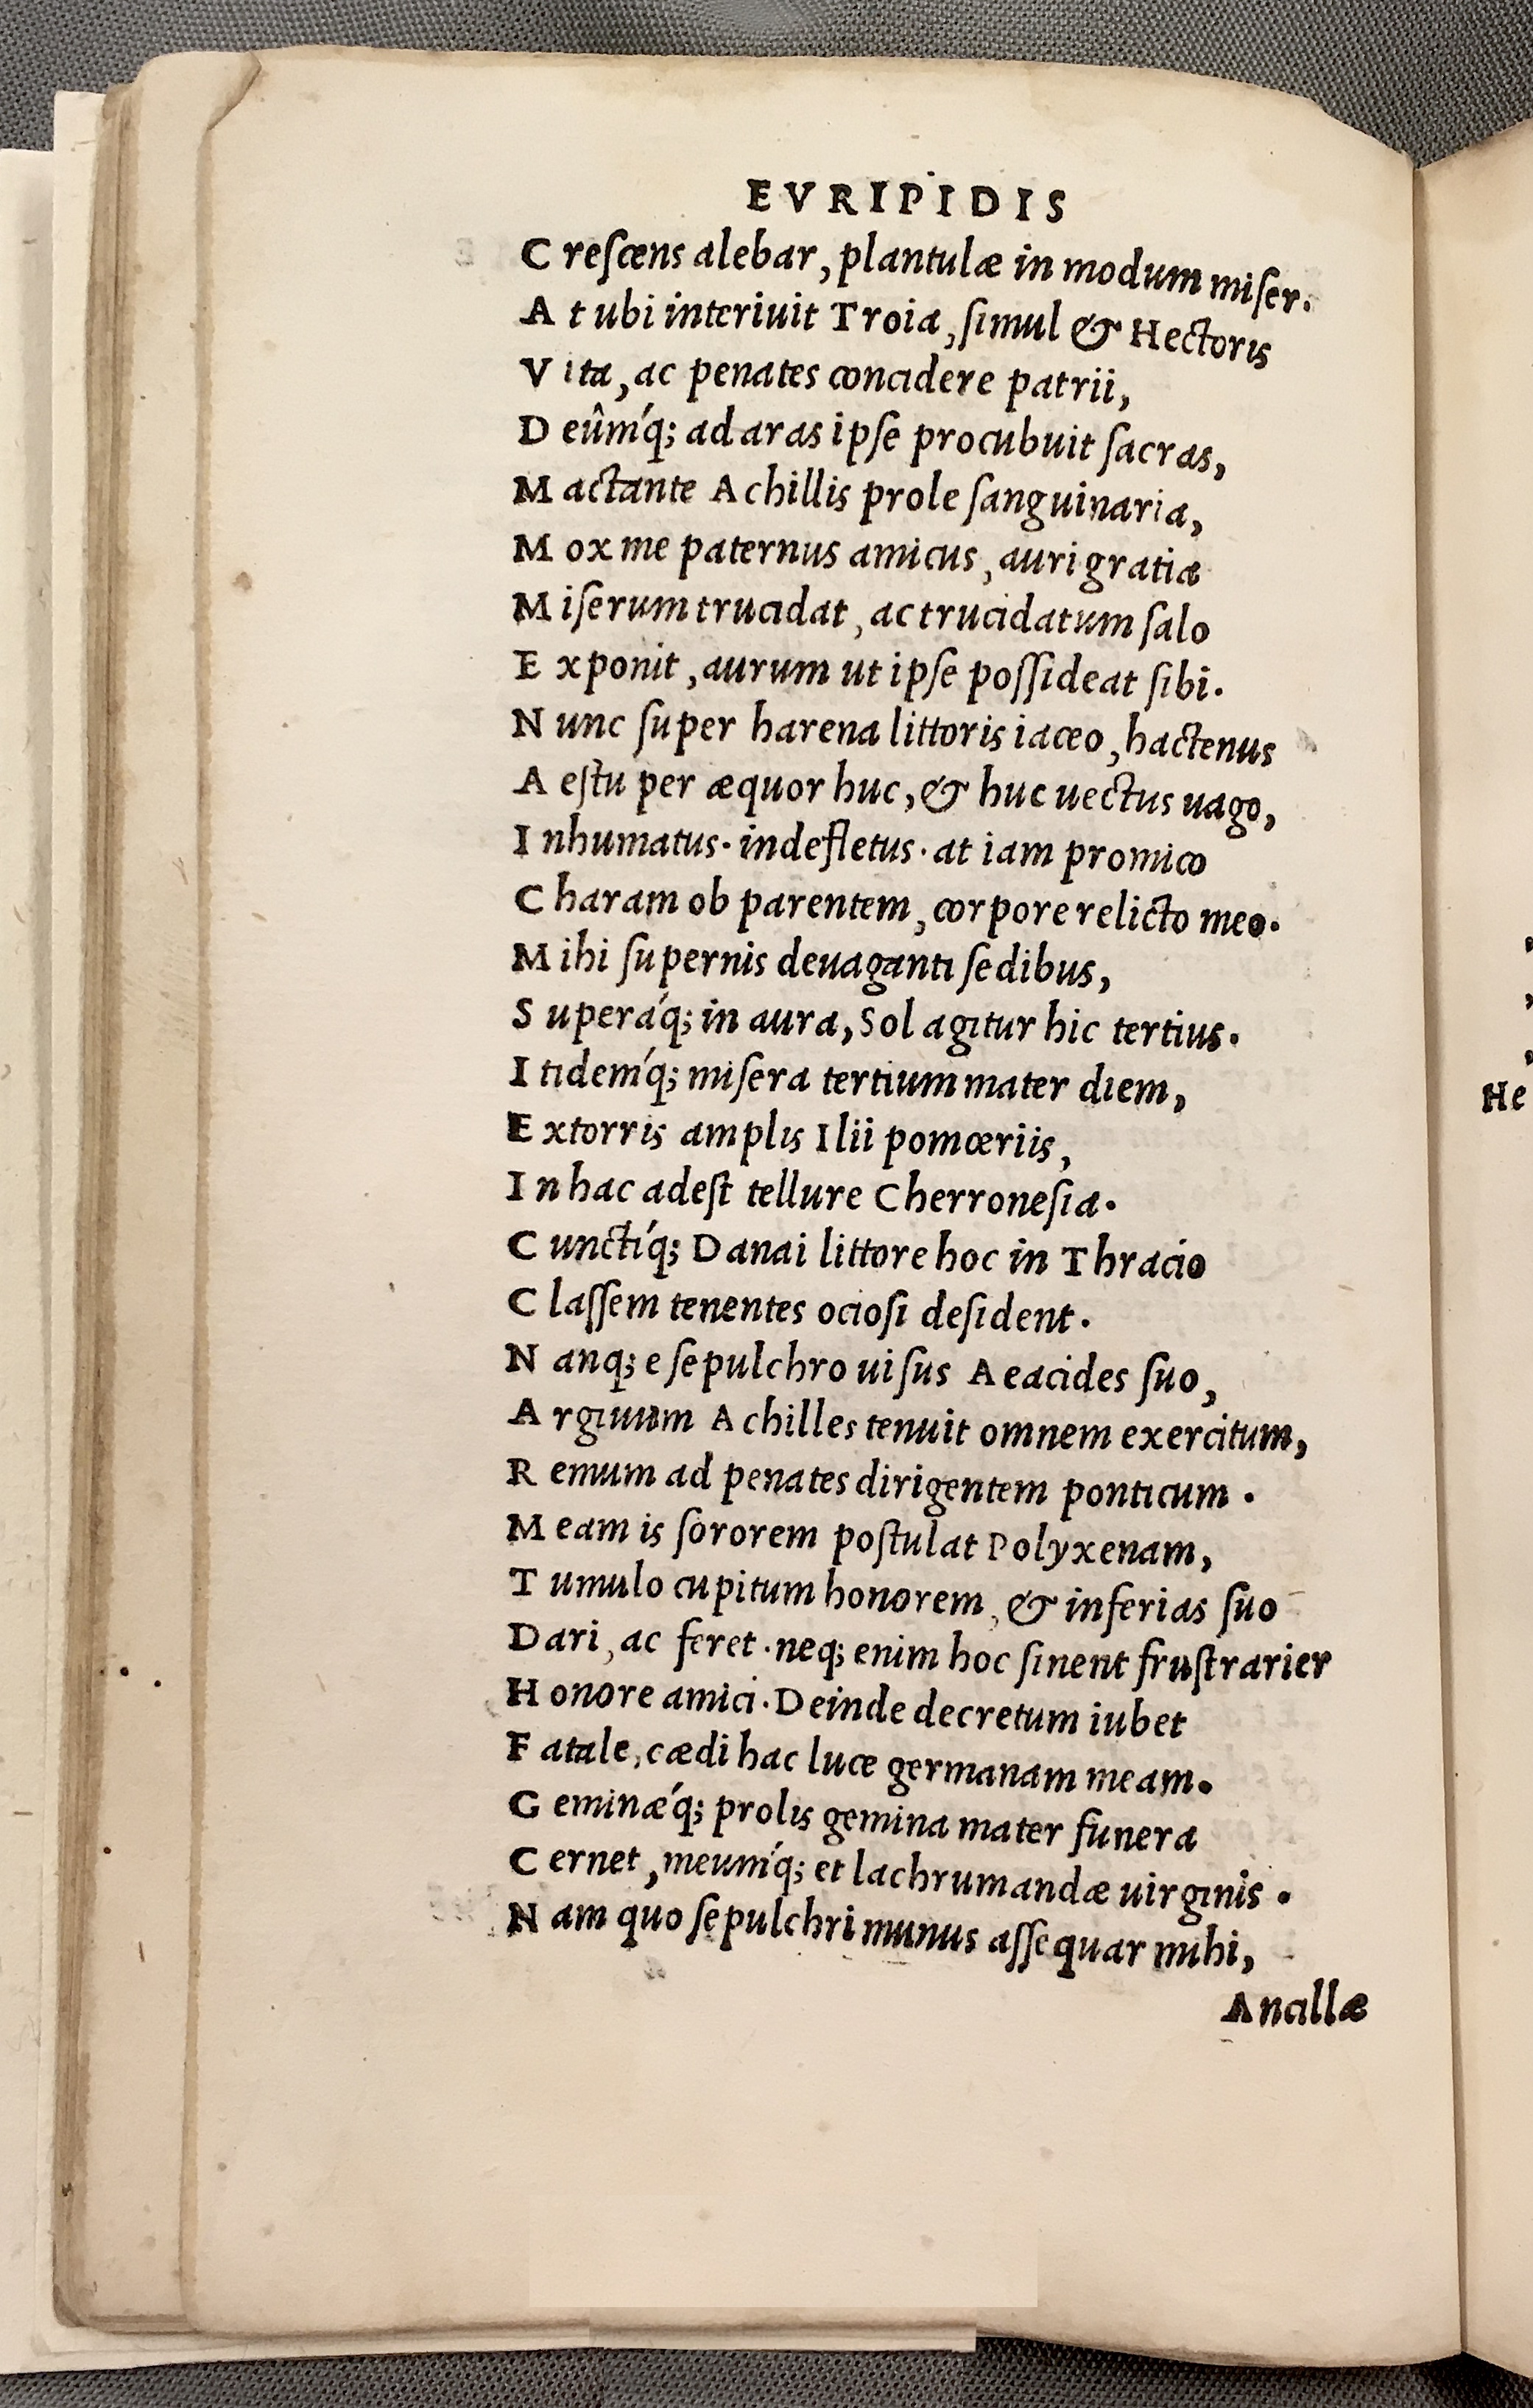 EVRIPIDIS
Creſcens alebar, plantulæ in modum miſer.
At ubi interiuit Troia, ſimul & Hectoris
Vita, ac penates concidere patrii,
Deûmq́; ad aras ipſe procubuit ſacras,
Mactante Achillis prole ſanguinaria,
Mox me paternus amicus, auri gratia
Miſerum trucidat, ac trucidatum ſalo
Exponit, aurum ut ipſe poſſideat ſibi.
Nunc ſuper harena littoris iaceo, hactenus
Aeſtu per æquor huc, & huc uectus uago,
Inhumatus. indefletus. at iam promico
Charam ob parentem, corpore relicto meo.
Mihi ſupernis deuaganti ſedibus,
Superaq́; in aura, Sol agitur hic tertius.
Itidemq́; miſera tertium mater diem,
Extorris amplis Ilii pomœriis,
In hac adeſt tellure Cherroneſia.
Cunctiq́; Danai littore hoc in Thracio
Claſſem tenentes ocioſi deſident.
Nanq; e ſepulchro uiſus Aeacides ſuo,
Argiuum Achilles tenuit omnem exercitum,
Remum ad penates dirigentem ponticum.
Meam is ſororem poſtulat Polyxenam,
Tumulo cupitum honorem, & inferias ſuo
Dari, ac feret. neq; enim hoc ſinent fruſtrarier
Honore amici. Deinde decretum iubet
Fatale, cædi hac luce germanam meam.
Geminæq́; prolis gemina mater funera
Cernet, meumq́; et lachrumandæ uirginis.
Nam quo ſepulchri munus aſſequar mihi,
Ancillæ
He